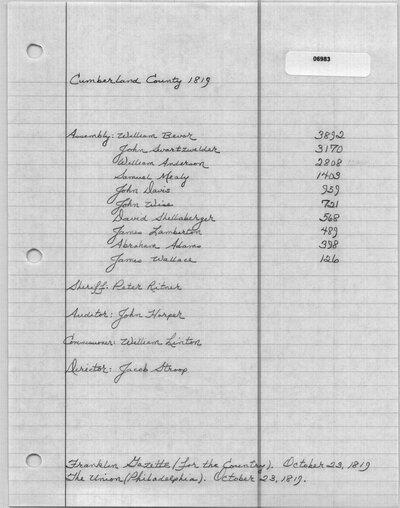 06983
Cumberland County 1819
Assembly: William Bevor 3892
John Swartzwelder 3170
William Anderson 2808
Samuel Mealy 1403
John Davis 959
John Wise 721
David Shellaberger 568
James Lamberton 489
Abraham Adams 398
James Wallace 126
Sheriff: Peter Ritner
Auditor: John Harper
Commissioner: William Linton
Director: Jacob Stroop
Franklin Gazette (for the Country). October 23, 1819
The Union (Philadelphia). October 23, 1819.